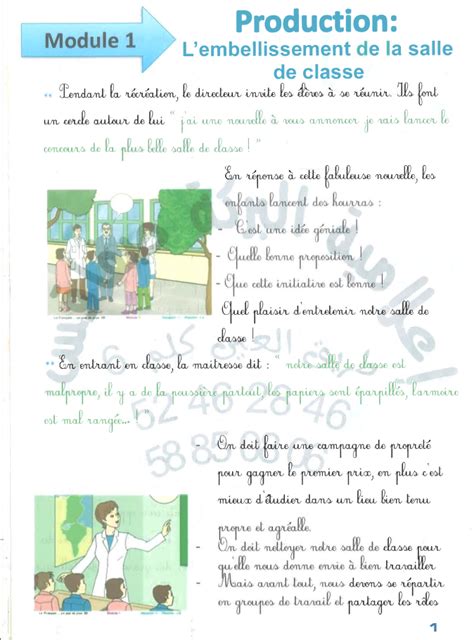 Module 1
Production:
L'embellissement de la salle
de classe
Pendant la récréation, le directeur invite les élèves à se réunir. Ils font
un cercle autour de lui " j'ai une nouvelle à vous annoncer je vais lancer le
concours de la plus belle salle de classe ! "
En réponse à cette fabuleuse nouvelle, les
enfants lancent des hourras :
- C'est une idée géniale !
- Quelle bonne proposition !
- Que cette initiative est bonne !
- Quel plaisir d'entretenir notre salle de
classe !
En entrant en classe, la maitresse dit : " notre salle de classe est
malpropre, il y a de la poussière partout, les papiers sont éparpillés, l'armoire
est mal rangée... ! "
- On doit faire une campagne de propreté
pour gagner le premier prix, en plus c'est
mieux d'étudier dans un lieu bien tenu
propre et agréalle.
- On doit nettoyer notre salle de classe pour
qu'elle nous donne envie à bien travailler
- Mais avant tout, nous devons se répartir
en groupes de travail et partager les rôles
52 46 28 46
58 85 03 06
1